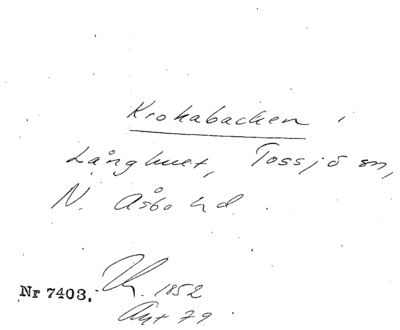 Krokabacken i
Långhult, Tossjö sn,
N. Åsbo hd.
Nr 7403. 1852
79